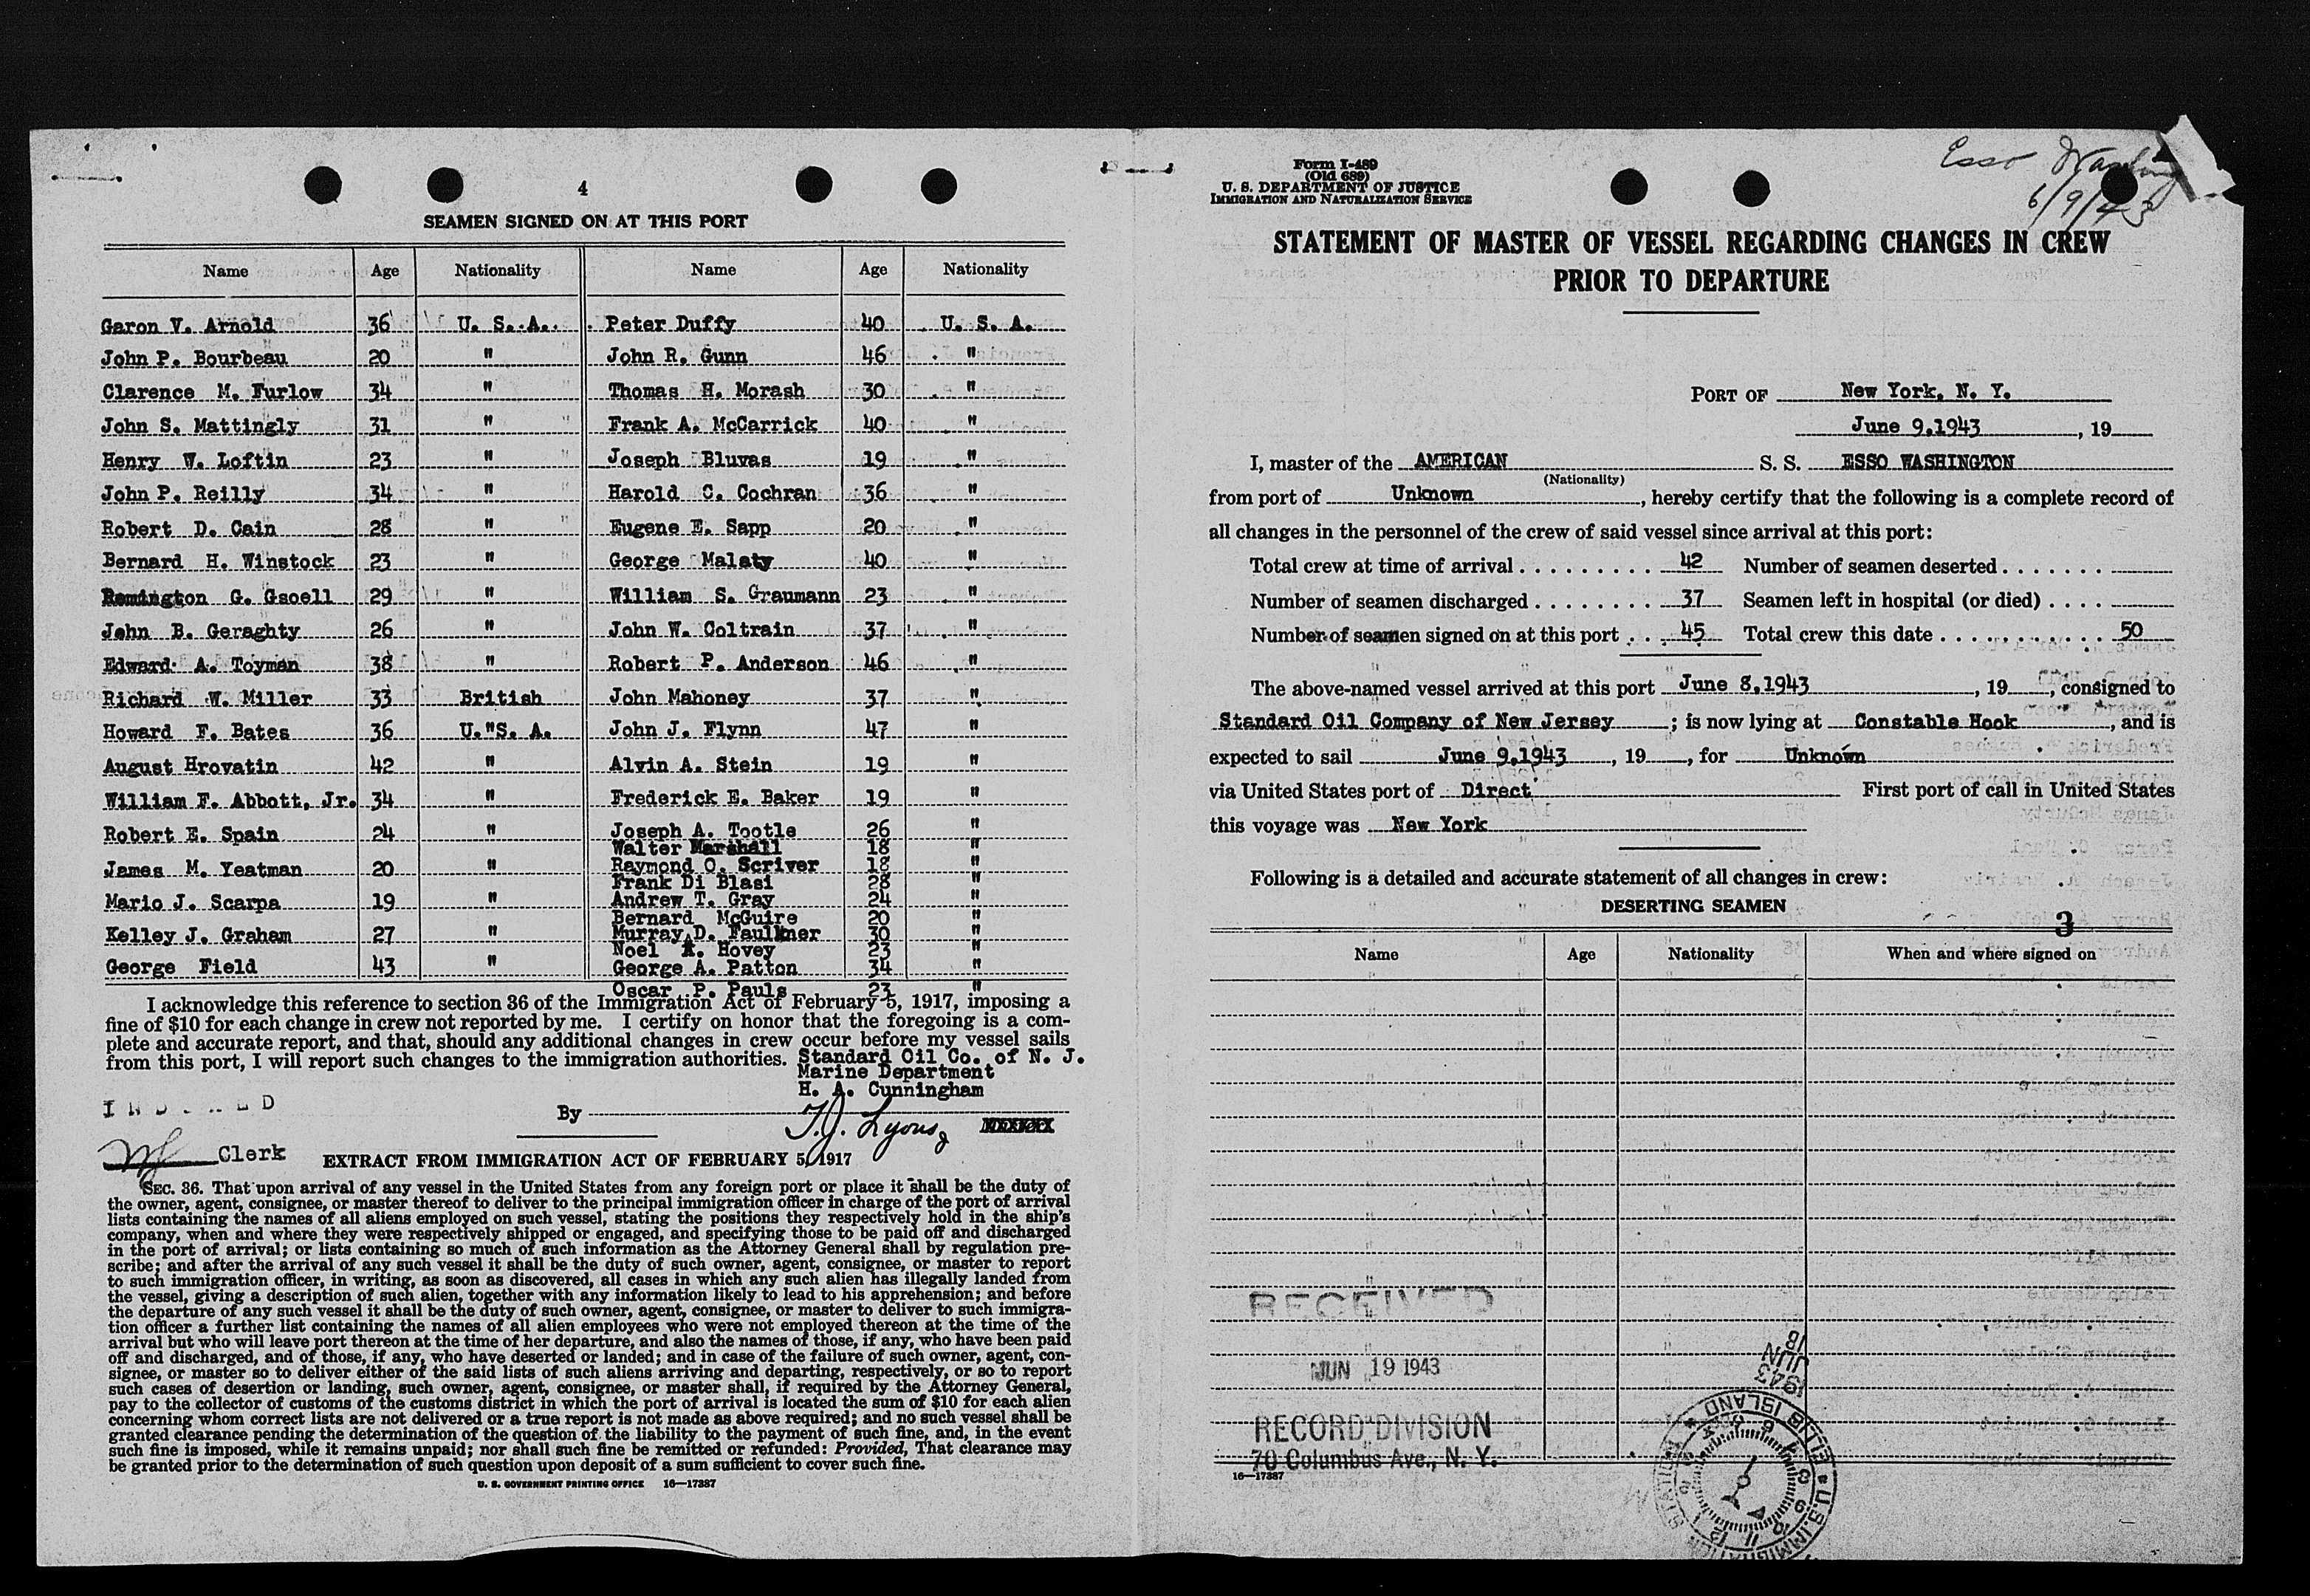 4
SEAMEN SIGNED ON AT THIS PORT
Name Age Nationality Name Age Nationality
Garon V. Arnold 36 U. S. A. Peter Duffy 40 U. S. A.
John P. Bourbeau 20 " John R. Gunn 46 "
Clarence M. Furlow 34 " Thomas H. Morash 30 "
John S. Mattingly 31 " Frank A. McCarrick 40 "
Henry W. Loftin 23 " Joseph Bluvas 19 "
John P. Reilly 34 " Harold C. Cochran 36 "
Robert D. Cain 28 " Eugene E. Sapp 20 "
Bernard H. Winstock 23 " George Malaty 40 "
Remington G. Gsoell 29 " William S. Graumann 23 "
John B. Geraghty 26 " John W. Coltrain 37 "
Edward A. Toyman 38 " Robert P. Anderson 46 "
Richard W. Miller 33 British John Mahoney 37 "
Howard F. Bates 36 U."S. A. John J. Flynn 47 "
August Hrovatin 42 " Alvin A. Stein 19 "
William F. Abbott, Jr. 34 " Frederick E. Baker 19 "
Robert E. Spain 24 " Joseph A. Tootle 26 "
Walter Marshall 18 "
James M. Yeatman 20 " Raymond O. Scriver 18 "
Frank Di Blasi 28 "
Mario J. Scarpa 19 " Andrew T. Gray 24 "
Bernard McGuire 20 "
Kelley J. Graham 27 " Murray D. Faulkner 30 "
Noel A. Hovey 23 "
George Field 43 " George A. Patton 34 "
Oscar P. Pauls 23 "
I acknowledge this reference to section 36 of the Immigration Act of February 5, 1917, imposing a
fine of $10 for each change in crew not reported by me. I certify on honor that the foregoing is a com-
plete and accurate report, and that, should any additional changes in crew occur before my vessel sails
from this port, I will report such changes to the immigration authorities. Standard Oil Co. of N. J.
Marine Department
H. A. Cunningham
By T.J. Lyons
Clerk
EXTRACT FROM IMMIGRATION ACT OF FEBRUARY 5, 1917
SEC. 36. That upon arrival of any vessel in the United States from any foreign port or place it shall be the duty of
the owner, agent, consignee, or master thereof to deliver to the principal immigration officer in charge of the port of arrival
lists containing the names of all aliens employed on such vessel, stating the positions they respectively hold in the ship's
company, when and where they were respectively shipped or engaged, and specifying those to be paid off and discharged
in the port of arrival; or lists containing so much of such information as the Attorney General shall by regulation pre-
scribe; and after the arrival of any such vessel it shall be the duty of such owner, agent, consignee, or master to report
to such immigration officer, in writing, as soon as discovered, all cases in which any such alien has illegally landed from
the vessel, giving a description of such alien, together with any information likely to lead to his apprehension; and before
the departure of any such vessel it shall be the duty of such owner, agent, consignee, or master to deliver to such immigra-
tion officer a further list containing the names of all alien employees who were not employed thereon at the time of the
arrival but who will leave port thereon at the time of her departure, and also the names of those, if any, who have been paid
off and discharged, and of those, if any, who have deserted or landed; and in case of the failure of such owner, agent, con-
signee, or master so to deliver either of the said lists of such aliens arriving and departing, respectively, or so to report
such cases of desertion or landing, such owner, agent, consignee, or master shall, if required by the Attorney General,
pay to the collector of customs of the customs district in which the port of arrival is located the sum of $10 for each alien
concerning whom correct lists are not delivered or a true report is not made as above required; and no such vessel shall be
granted clearance pending the determination of the question of the liability to the payment of such fine, and, in the event
such fine is imposed, while it remains unpaid; nor shall such fine be remitted or refunded: Provided, That clearance may
be granted prior to the determination of such question upon deposit of a sum sufficient to cover such fine.
U. S. GOVERNMENT PRINTING OFFICE 16—17387
Form I-489
(Old 689)
U. S. DEPARTMENT OF JUSTICE
IMMIGRATION AND NATURALIZATION SERVICE
Esso
6/9/43
STATEMENT OF MASTER OF VESSEL REGARDING CHANGES IN CREW
PRIOR TO DEPARTURE
PORT OF New York, N. Y.
June 9,1943, 19
I, master of the AMERICAN S. S. ESSO WASHINGTON
(Nationality)
from port of Unknown, hereby certify that the following is a complete record of
all changes in the personnel of the crew of said vessel since arrival at this port:
Total crew at time of arrival 42 Number of seamen deserted
Number of seamen discharged 37 Seamen left in hospital (or died)
Number of seamen signed on at this port 45 Total crew this date 50
The above-named vessel arrived at this port June 8,1943, 19, consigned to
Standard Oil Company of New Jersey; is now lying at Constable Hook, and is
expected to sail June 9,1943, 19, for Unknown
via United States port of Direct First port of call in United States
this voyage was New York
Following is a detailed and accurate statement of all changes in crew:
DESERTING SEAMEN
3
Name Age Nationality When and where signed on
RECEIVED
JUN 19 1943
RECORD DIVISION
70 Columbus Ave., N. Y.
16—17387
1943
JUN
18
ELLIS ISLAND
U.S. IMMIGRATION STATION